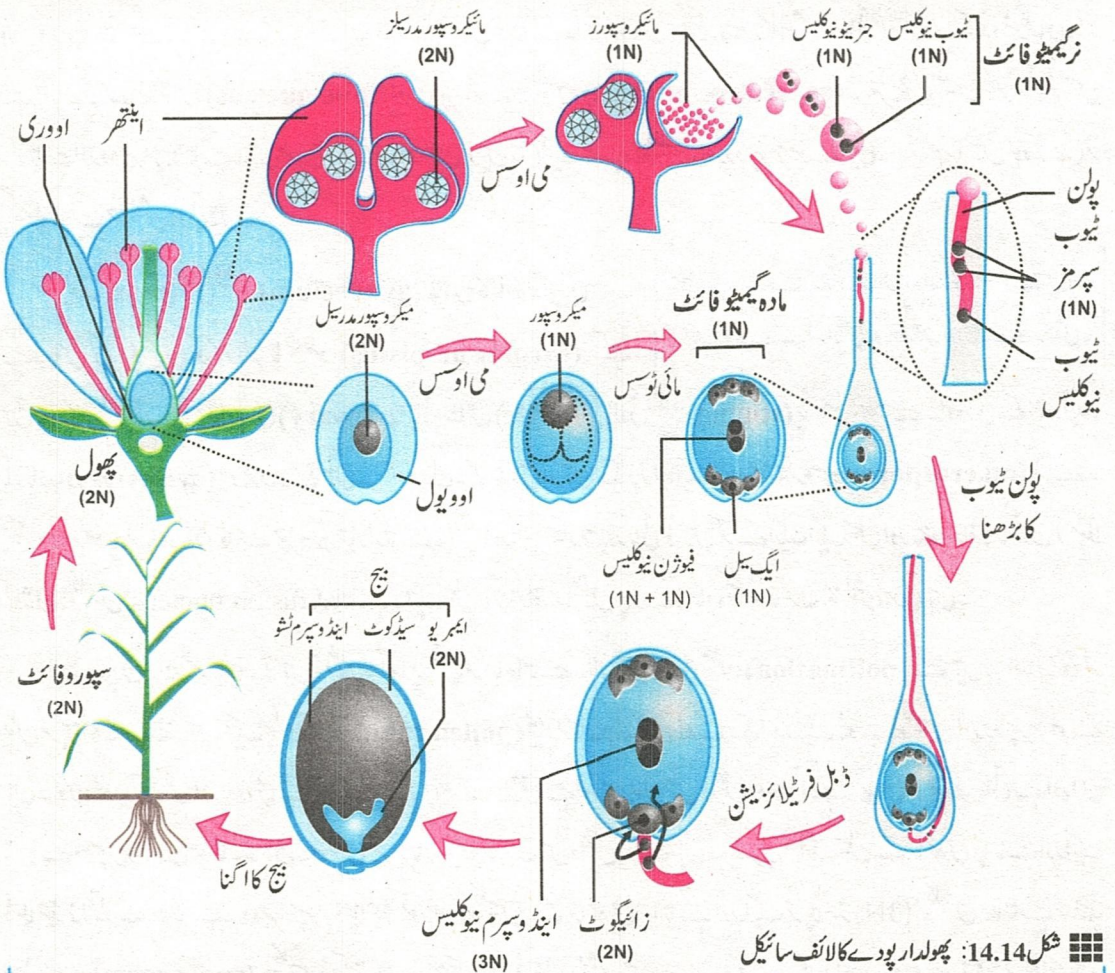 مائیکروسپور مدر سیلز
(2N)
مائیکروسپورز
(1N)
جنریٹو نیوکلیس
(1N)
ٹیوب نیوکلیس
(1N)
نر گیمیٹوفائٹ
(1N)
اووری
اینتھر
می اوسس
پولن
ٹیوب
سپرمز
(1N)
ٹیوب
نیوکلیس
میگروسپور مدر سیل
(2N)
می اوسس
میگروسپور
(1N)
مائی ٹوسس
مادہ گیمیٹوفائٹ
(1N)
پھول
(2N)
اوویول
فیوژن نیوکلیس
(1N + 1N)
ایگ سیل
(1N)
پولن ٹیوب
کا بڑھنا
بیج
ایمبریو
(2N)
سیڈ کوٹ
اینڈوسپرم ٹشو
سپوروفائٹ
(2N)
ڈبل فرٹیلائزیشن
بیج کا اگنا
زائیگوٹ
(2N)
اینڈوسپرم نیوکلیس
(3N)
شکل 14.14: پھولدار پودے کا لائف سائیکل